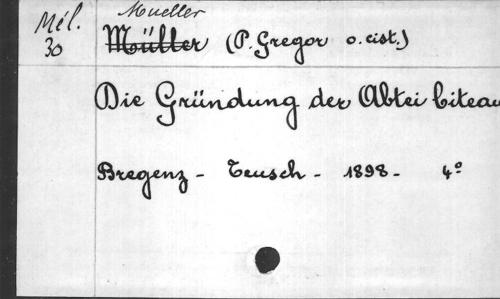 Mueller
Mél. Müller (P. Gregor o. cist.)
30
Die Gründung der Abtei Citeau
Bregenz - Teusch - 1898 - 4º